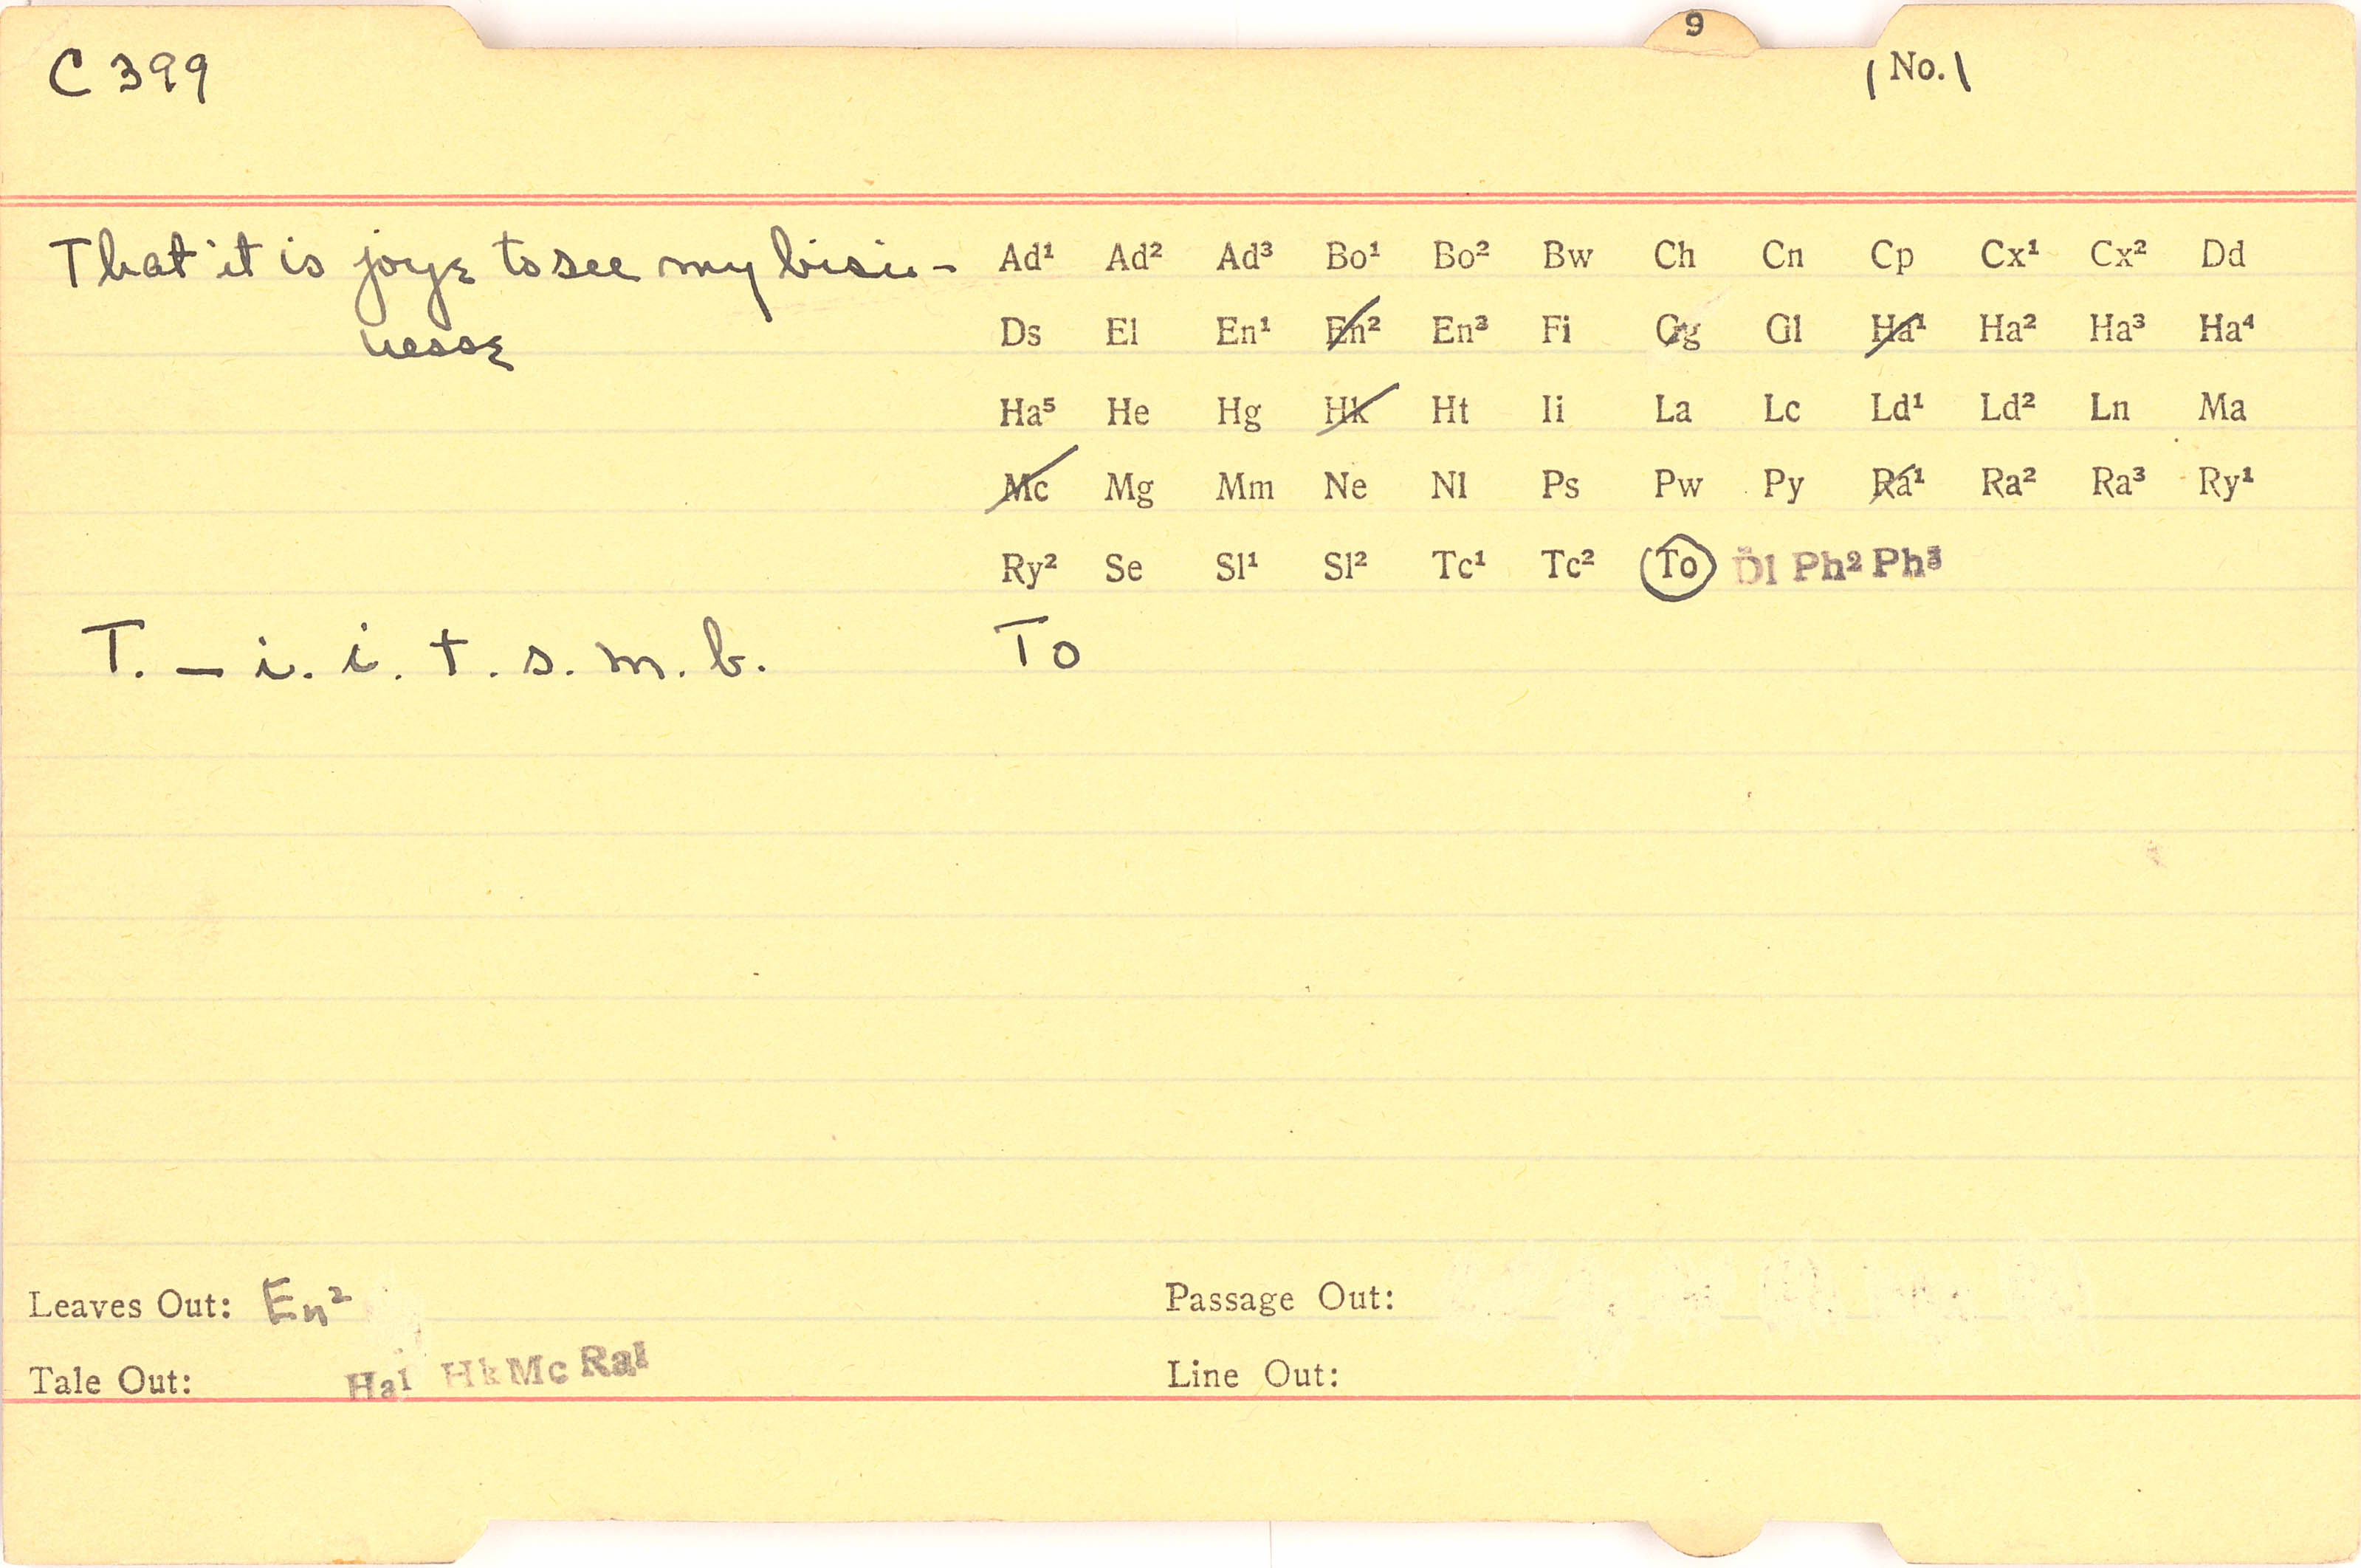 9
C 399 / No. \
That it is joye to see my bisi-
nesse
Ad¹ Ad² Ad³ Bo¹ Bo² Bw Ch Cn Cp Cx¹ Cx² Dd
Ds El En¹ En² En³ Fi Gg Gl Ha¹ Ha² Ha³ Ha⁴
Ha⁵ He Hg Hk Ht Ii La Lc Ld¹ Ld² Ln Ma
Mc Mg Mm Ne Nl Ps Pw Py Ra¹ Ra² Ra³ Ry¹
Ry² Se Sl¹ Sl² Tc¹ Tc² To Dl Ph² Ph³
T. – i. i. t. s. m. b. To
Leaves Out: En² Passage Out:
Tale Out: Ha¹ Hk Mc Ra¹ Line Out: